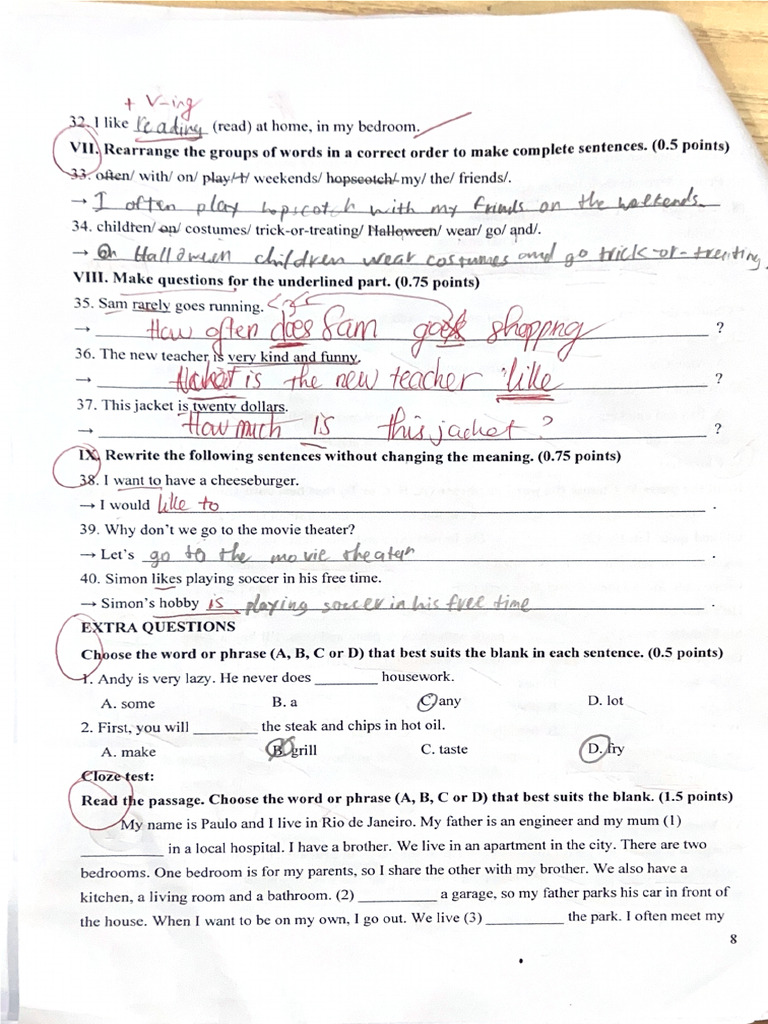 + V-ing
32. I like reading (read) at home, in my bedroom.
VII. Rearrange the groups of words in a correct order to make complete sentences. (0.5 points)
33. often/ with/ on/ play/ I/ weekends/ hopscotch/ my/ the/ friends/.
→ I often play hopscotch with my friends on the weekends.
34. children/ on/ costumes/ trick-or-treating/ Halloween/ wear/ go/ and/.
→ On Halloween children wear costumes and go trick-or-treating.
VIII. Make questions for the underlined part. (0.75 points)
35. Sam rarely goes running.
→ How often does Sam goes shoppng ?
36. The new teacher is very kind and funny.
→ What is the new teacher like ?
37. This jacket is twenty dollars.
→ How much is this jacket? ?
IX. Rewrite the following sentences without changing the meaning. (0.75 points)
38. I want to have a cheeseburger.
→ I would like to .
39. Why don't we go to the movie theater?
→ Let's go to the movie theater .
40. Simon likes playing soccer in his free time.
→ Simon's hobby is playing soccer in his free time .
EXTRA QUESTIONS
Choose the word or phrase (A, B, C or D) that best suits the blank in each sentence. (0.5 points)
1. Andy is very lazy. He never does ________ housework.
A. some B. a C. any D. lot
2. First, you will ________ the steak and chips in hot oil.
A. make B. grill C. taste D. fry
Cloze test:
Read the passage. Choose the word or phrase (A, B, C or D) that best suits the blank. (1.5 points)
My name is Paulo and I live in Rio de Janeiro. My father is an engineer and my mum (1)
__________ in a local hospital. I have a brother. We live in an apartment in the city. There are two
bedrooms. One bedroom is for my parents, so I share the other with my brother. We also have a
kitchen, a living room and a bathroom. (2) __________ a garage, so my father parks his car in front of
the house. When I want to be on my own, I go out. We live (3) __________ the park. I often meet my
8